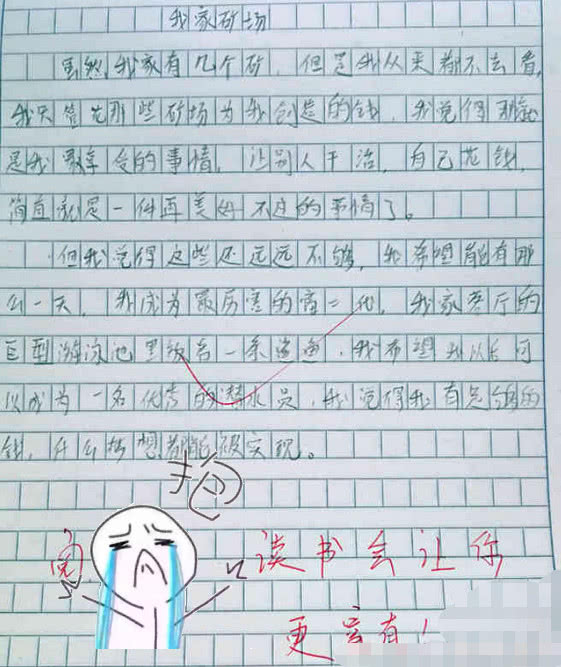 我家矿场
虽然我家有几个矿,但是我从来都不去看,
我只管花那些矿场为我创造的钱,我觉得那就
是我最享受的事情,让别人干活,自己花钱,
简直就是一件再美好不过的事情了。
但我觉得这些还远远不够,我希望能有那
么一天,我成为最厉害的富二代,我家客厅的
巨型游泳池里放着一条鲨鱼,我希望我从此可
以成为一名优秀的潜水员,我觉得我有足够的
钱,什么梦想都能被实现。
抱
读书会让你
更富有!